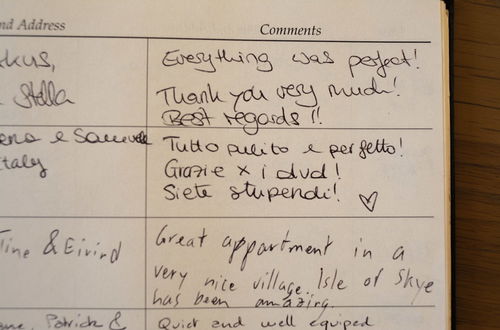 nd Address Comments
kus, Everything was perfect!
Stella Thank you very much!
Best regards !!
e Samuele Tutto pulito e perfetto!
Italy Grazie x i dvd!
Siete stupendi! ♡
ine & Eivind Great appartment in a
very nice village. Isle of Skye
has been amazing.
Patrick & Quiet and well equiped